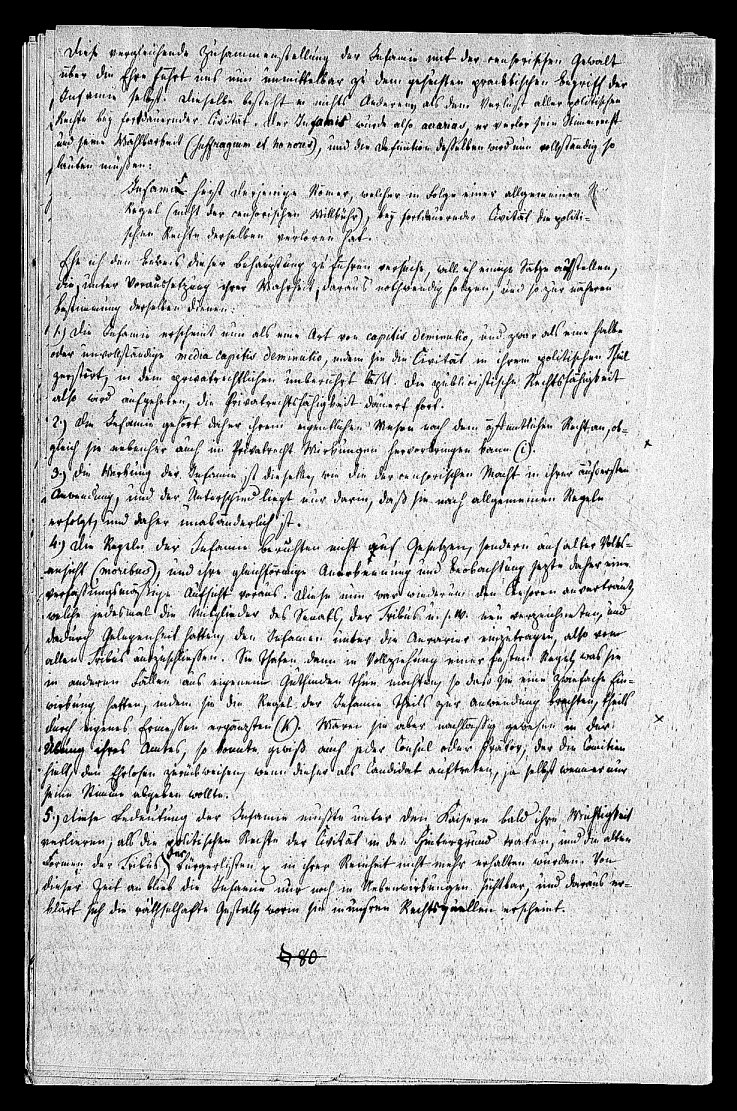 Diese vergleichende Zusammenstellung der Infamie mit der censorischen Gewalt
über die Ehre führt uns nun unmittelbar zu dem gesuchten practischen Begriff der
Infamie selbst. Dieselbe besteht in nichts Anderem, als dem Verlust aller politischen
Rechte bey fortdauernder Civität. Der Infamis wurde also aerarius, er verlor sein Stimmrecht
und seine Wählbarkeit (suffragium et honores), und die Definition desselben wird nun vollständig so
lauten müssen:
Infamis heißt derjenige Römer, welcher in Folge einer allgemeinen
Regel (nicht der censorischen Willkühr), bey fortdauernder Civität die politi-
schen Rechte derselben verloren hat.
Ehe ich den Beweis dieser Behauptung zu führen versuche, will ich einige Sätze aufstellen,
die, unter Voraussetzung ihrer Wahrheit, daraus nothwendig folgen, und so zur näheren
Bestimmung derselben dienen:
1.) Die Infamie erscheint nun als eine Art von capitis deminutio, und zwar als eine halbe
oder unvollständige media capitis deminutio, indem sie die Civität in ihrem politischen Theil
zerstört, in dem privatrechtlichen unberührt läßt. Die publicistische Rechtsfähigkeit
also wird aufgehoben, die Privatrechtsfähigkeit dauert fort.
2.) Die Infamie gehört daher ihrem eigentlichen Wesen nach dem öffentlichen Recht an, ob-
gleich sie nebenher auch im Privatrecht Wirkungen hervorbringen kann (i).
3.) Die Wirkung der Infamie ist dieselbe, wie die der censorischen Macht in ihrer äußersten
Anwendung, und der Unterschied liegt nur darin, daß sie nach allgemeinen Regeln
erfolgt, und daher unabänderlich ist.
4.) Die Regeln der Infamie beruhten nicht auf Gesetzen, sondern auf alter Volks-
ansicht (moribus), und ihre gleichförmige Anerkennung und Beobachtung setzte daher eine
verfassungsmäßige Aufsicht voraus. Diese nun war wiederum den Censoren anvertraut,
welche jedesmal die Mitglieder des Senats, der Tribus u. s. w. neu verzeichneten, und
dadurch Gelegenheit hatten, den Infamen unter die Aerarier einzutragen, also von
allen Tribus auszuschließen. Sie thaten dann in Vollziehung einer festen Regel, was sie
in anderen Fällen aus eigenem Gutfinden thun mochten, so daß sie eine zweifache Ein-
wirkung hatten, indem sie die Regel der Infamie theils zur Anwendung brachten, theils
durch eigenes Ermessen ergänzten (k). Waren sie aber nachlässig gewesen in der
Übung ihres Amtes, so konnte gewiß auch jeder Consul oder Prätor, der die Comitien
hielt, den Ehrlosen zurückweisen, wenn dieser als Candidat auftreten, ja selbst wenn er nur
seine Stimme abgeben wollte.
5.) Diese Bedeutung der Infamie mußte unter den Kaisern bald ihre Wichtigkeit
verlieren, als die politischen Rechte der Civität in den Hintergrund traten, und die alten
Formen der Tribus der Bürgerlisten in ihrer Reinheit nicht mehr erhalten wurden. Von
dieser Zeit an blieb die Infamie nur noch in Nebenwirkungen sichtbar, und daraus er-
klärt sich die räthselhafte Gestalt, worin sie in unsren Rechtsquellen erscheint.
§ 80